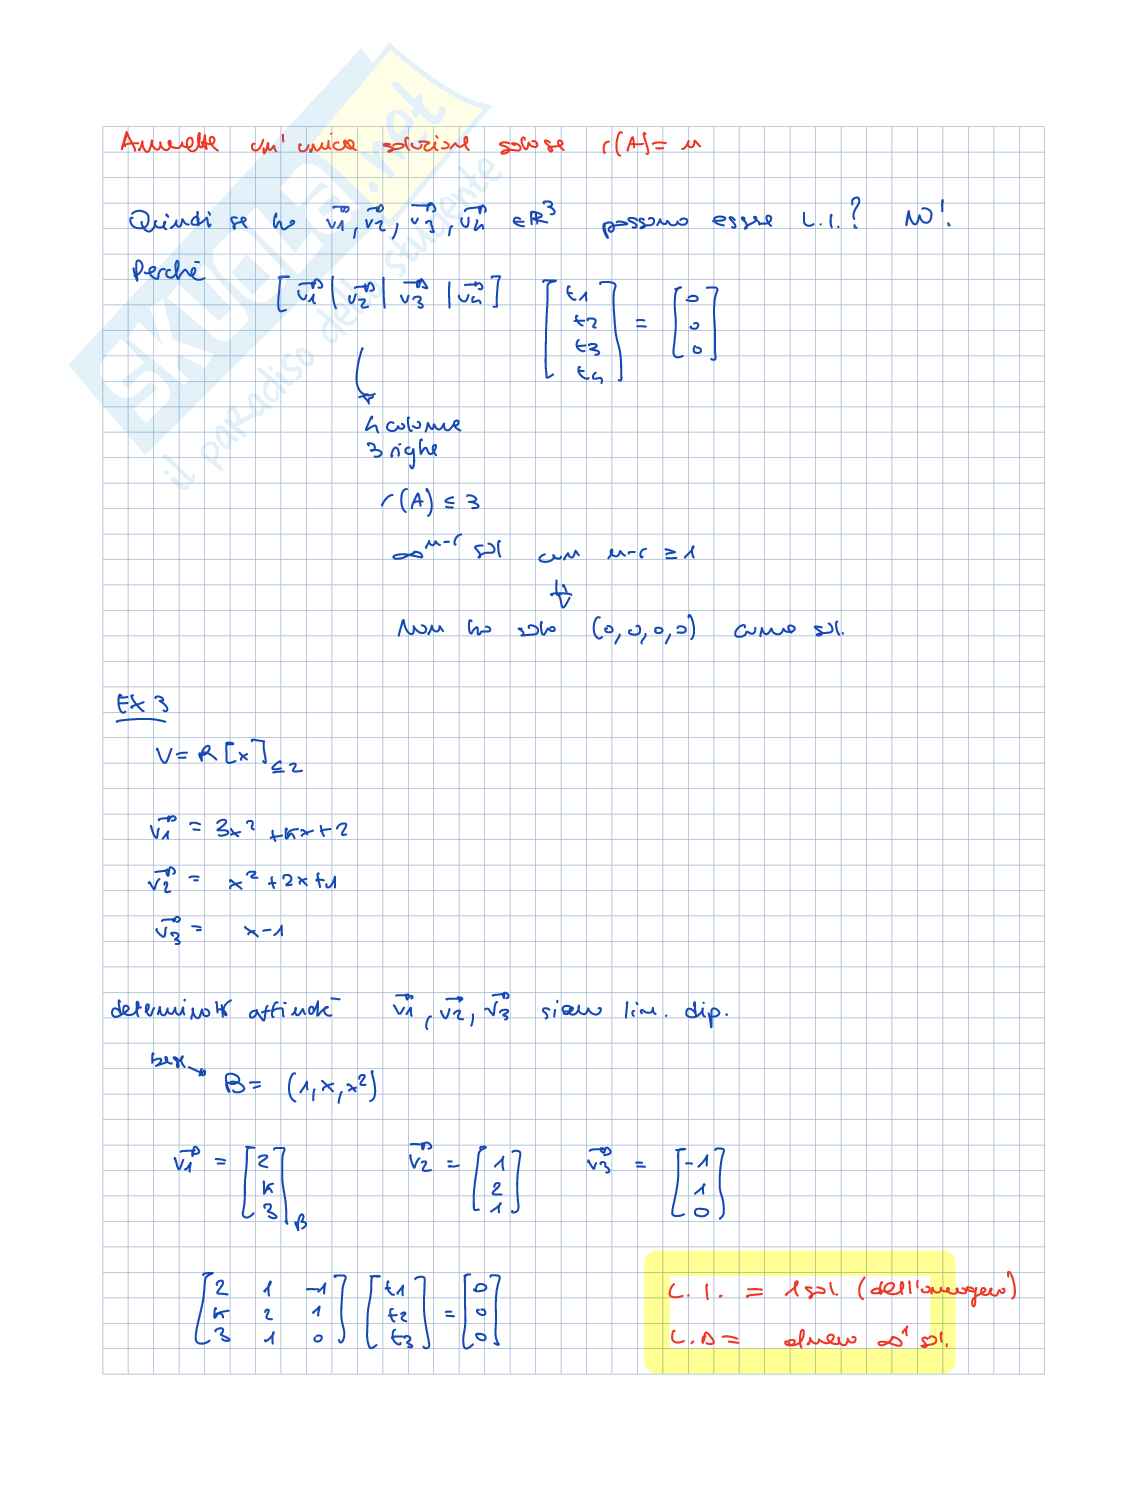 Ammette un'unica soluzione solo se r(A)= n
Quindi se ho v1, v2, v3, v4 ∈ R³ possono essere L.I.? NO!
Perchè
[v1 | v2 | v3 | v4] [t1 t2 t3 t4] = [0 0 0]
4 colonne
3 righe
r(A) ≤ 3
∞^(n-r) sol con n-r ≥ 1
⇓
Non ho solo (0,0,0,0) come sol.
EX 3
V = R[x]≤2
v1 = 3x² + kx + 2
v2 = x² + 2x + 1
v3 = x - 1
determinare k affinchè v1, v2, v3 siano lin. dip.
B = (1, x, x²)
v1 = [2 k 3]B v2 = [1 2 1] v3 = [-1 1 0]
[2 1 -1
k 2 1
3 1 0] [t1 t2 t3] = [0 0 0]
L.I. = 1 sol. (dell'omogeneo)
L.D = almeno ∞¹ sol.
SKUOLA.net
il paradiso dello studente